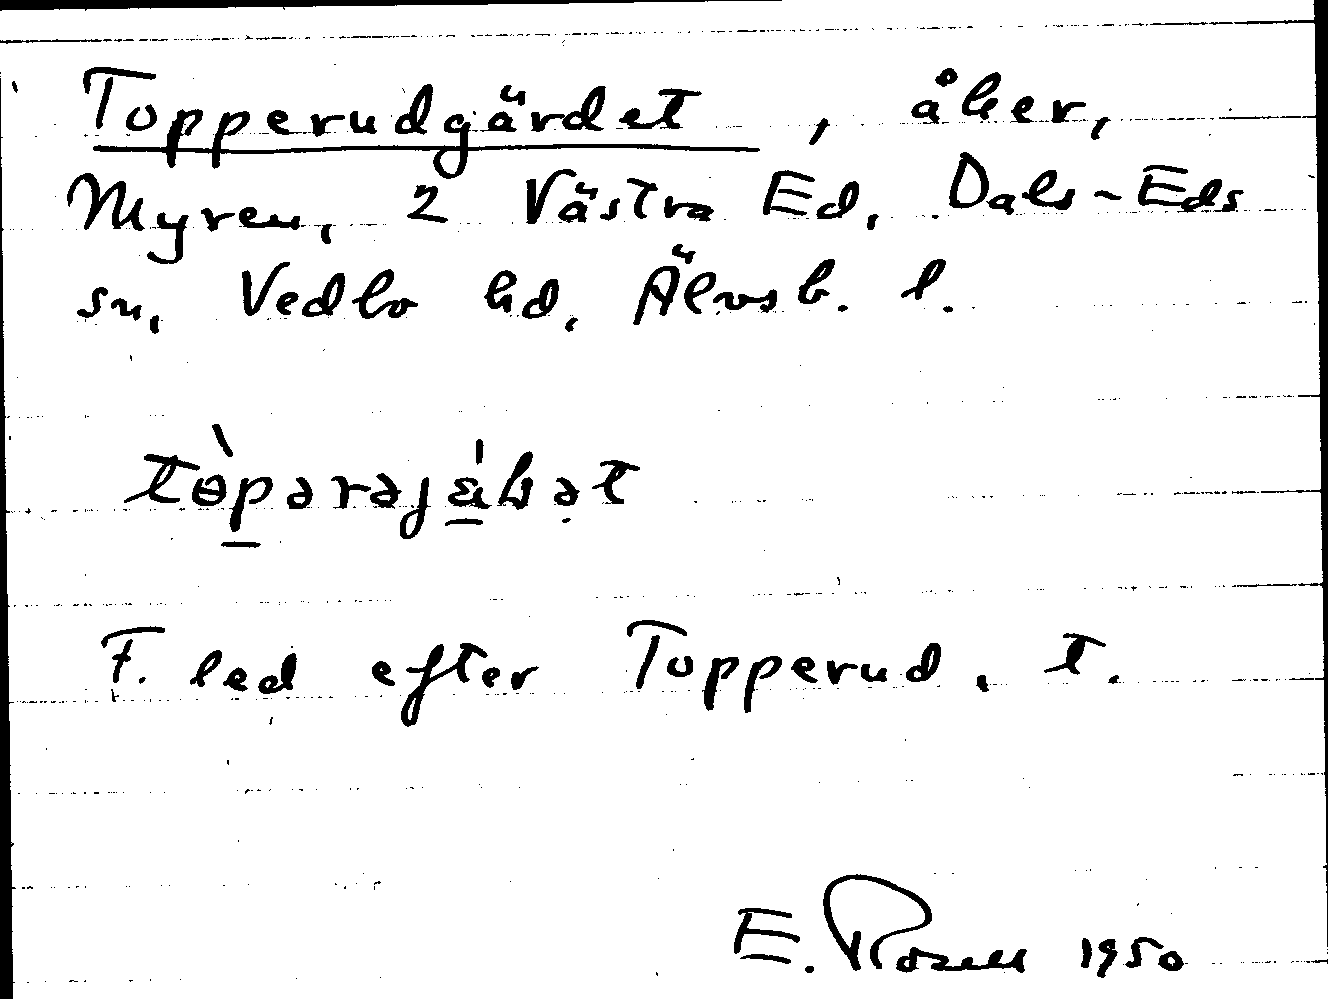 Topperudgärdet, åker,
Myren, 2 Västra Ed, Dals-Eds
sn, Vedbo hd, Älvsb. l.
F. led efter Topperud, t.
E. Rosell 1950